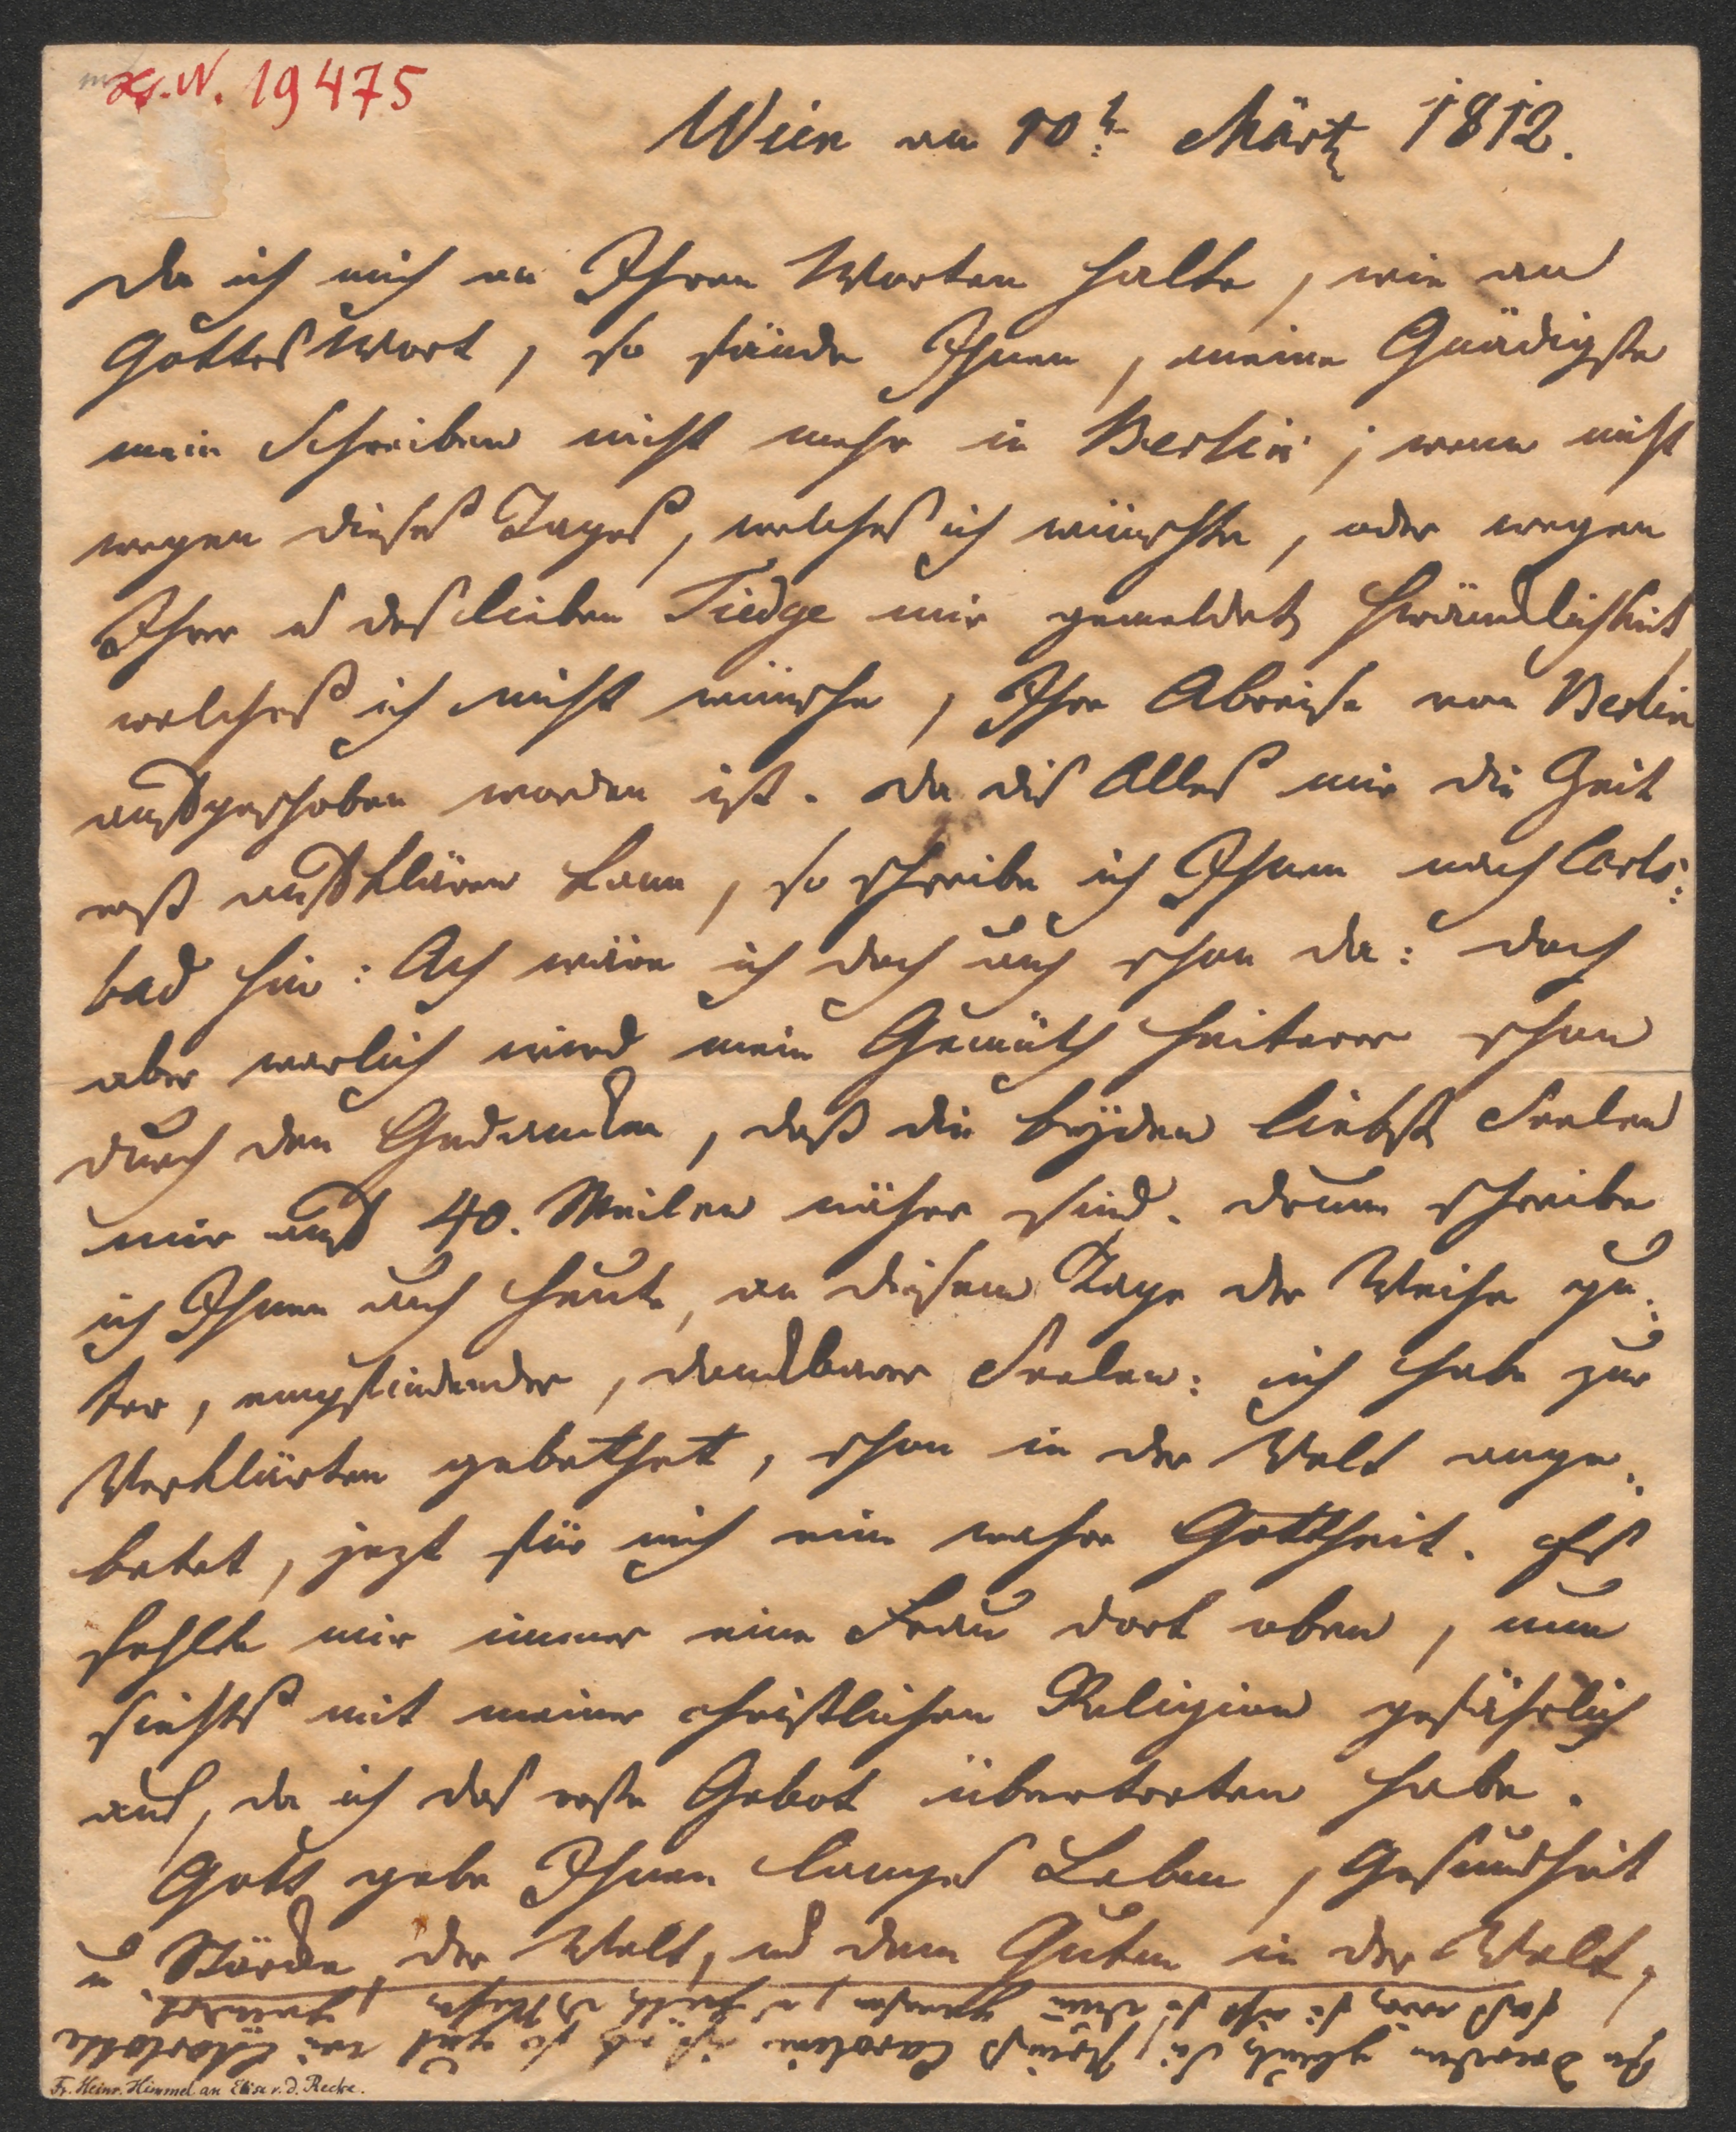 H.N. 19475
Wien am 10t: Märtz 1812.
Da ich mich an Ihren Worten halte, wie an
Gottes Wort, so fände Ihnen, meine Gnädigste
mein Schreiben nicht mehr in Berlin; wenn nicht
wegen dieses Tages, welches ich wünschte, oder wegen
Ihrer u des lieben Tiedge mir gemeldete Kränklichkeit
welches ich nicht wünsche, Ihre Abreise von Berlin
aufgeschoben worden ist. Da dis Alles mir die Zeit
erst aufklären kann, so schreibe ich Ihnen nach Carls:
bad hin: Ach wäre ich doch auch schon da: doch
aber warlich wird mein Gemüth heiterer schon
durch den Gedancken, daß die beyden liebsten Seelen
mir auf 40. Meilen näher sind. Drum schreibe
ich Ihnen auch heute, an diesem Tage der Weihe gu:
ter, empfindender, danckbarer Seelen: ich habe zur
Verklärten gebethet, schon in der Welt ange:
betet, jezt für mich eine wahre Gottheit. Es
fehlte mir immer eine Frau dort oben, nun
siehts mit meiner christlichen Religion gefährlich
aus, da ich das erste Gebot übertreten habe.
Gott gebe Ihnen langes Leben, Gesundheit
u Stärcke, der Welt, und dem Guten in der Welt,
Fr. Heinr. Himmel an Elise v. d. Recke.